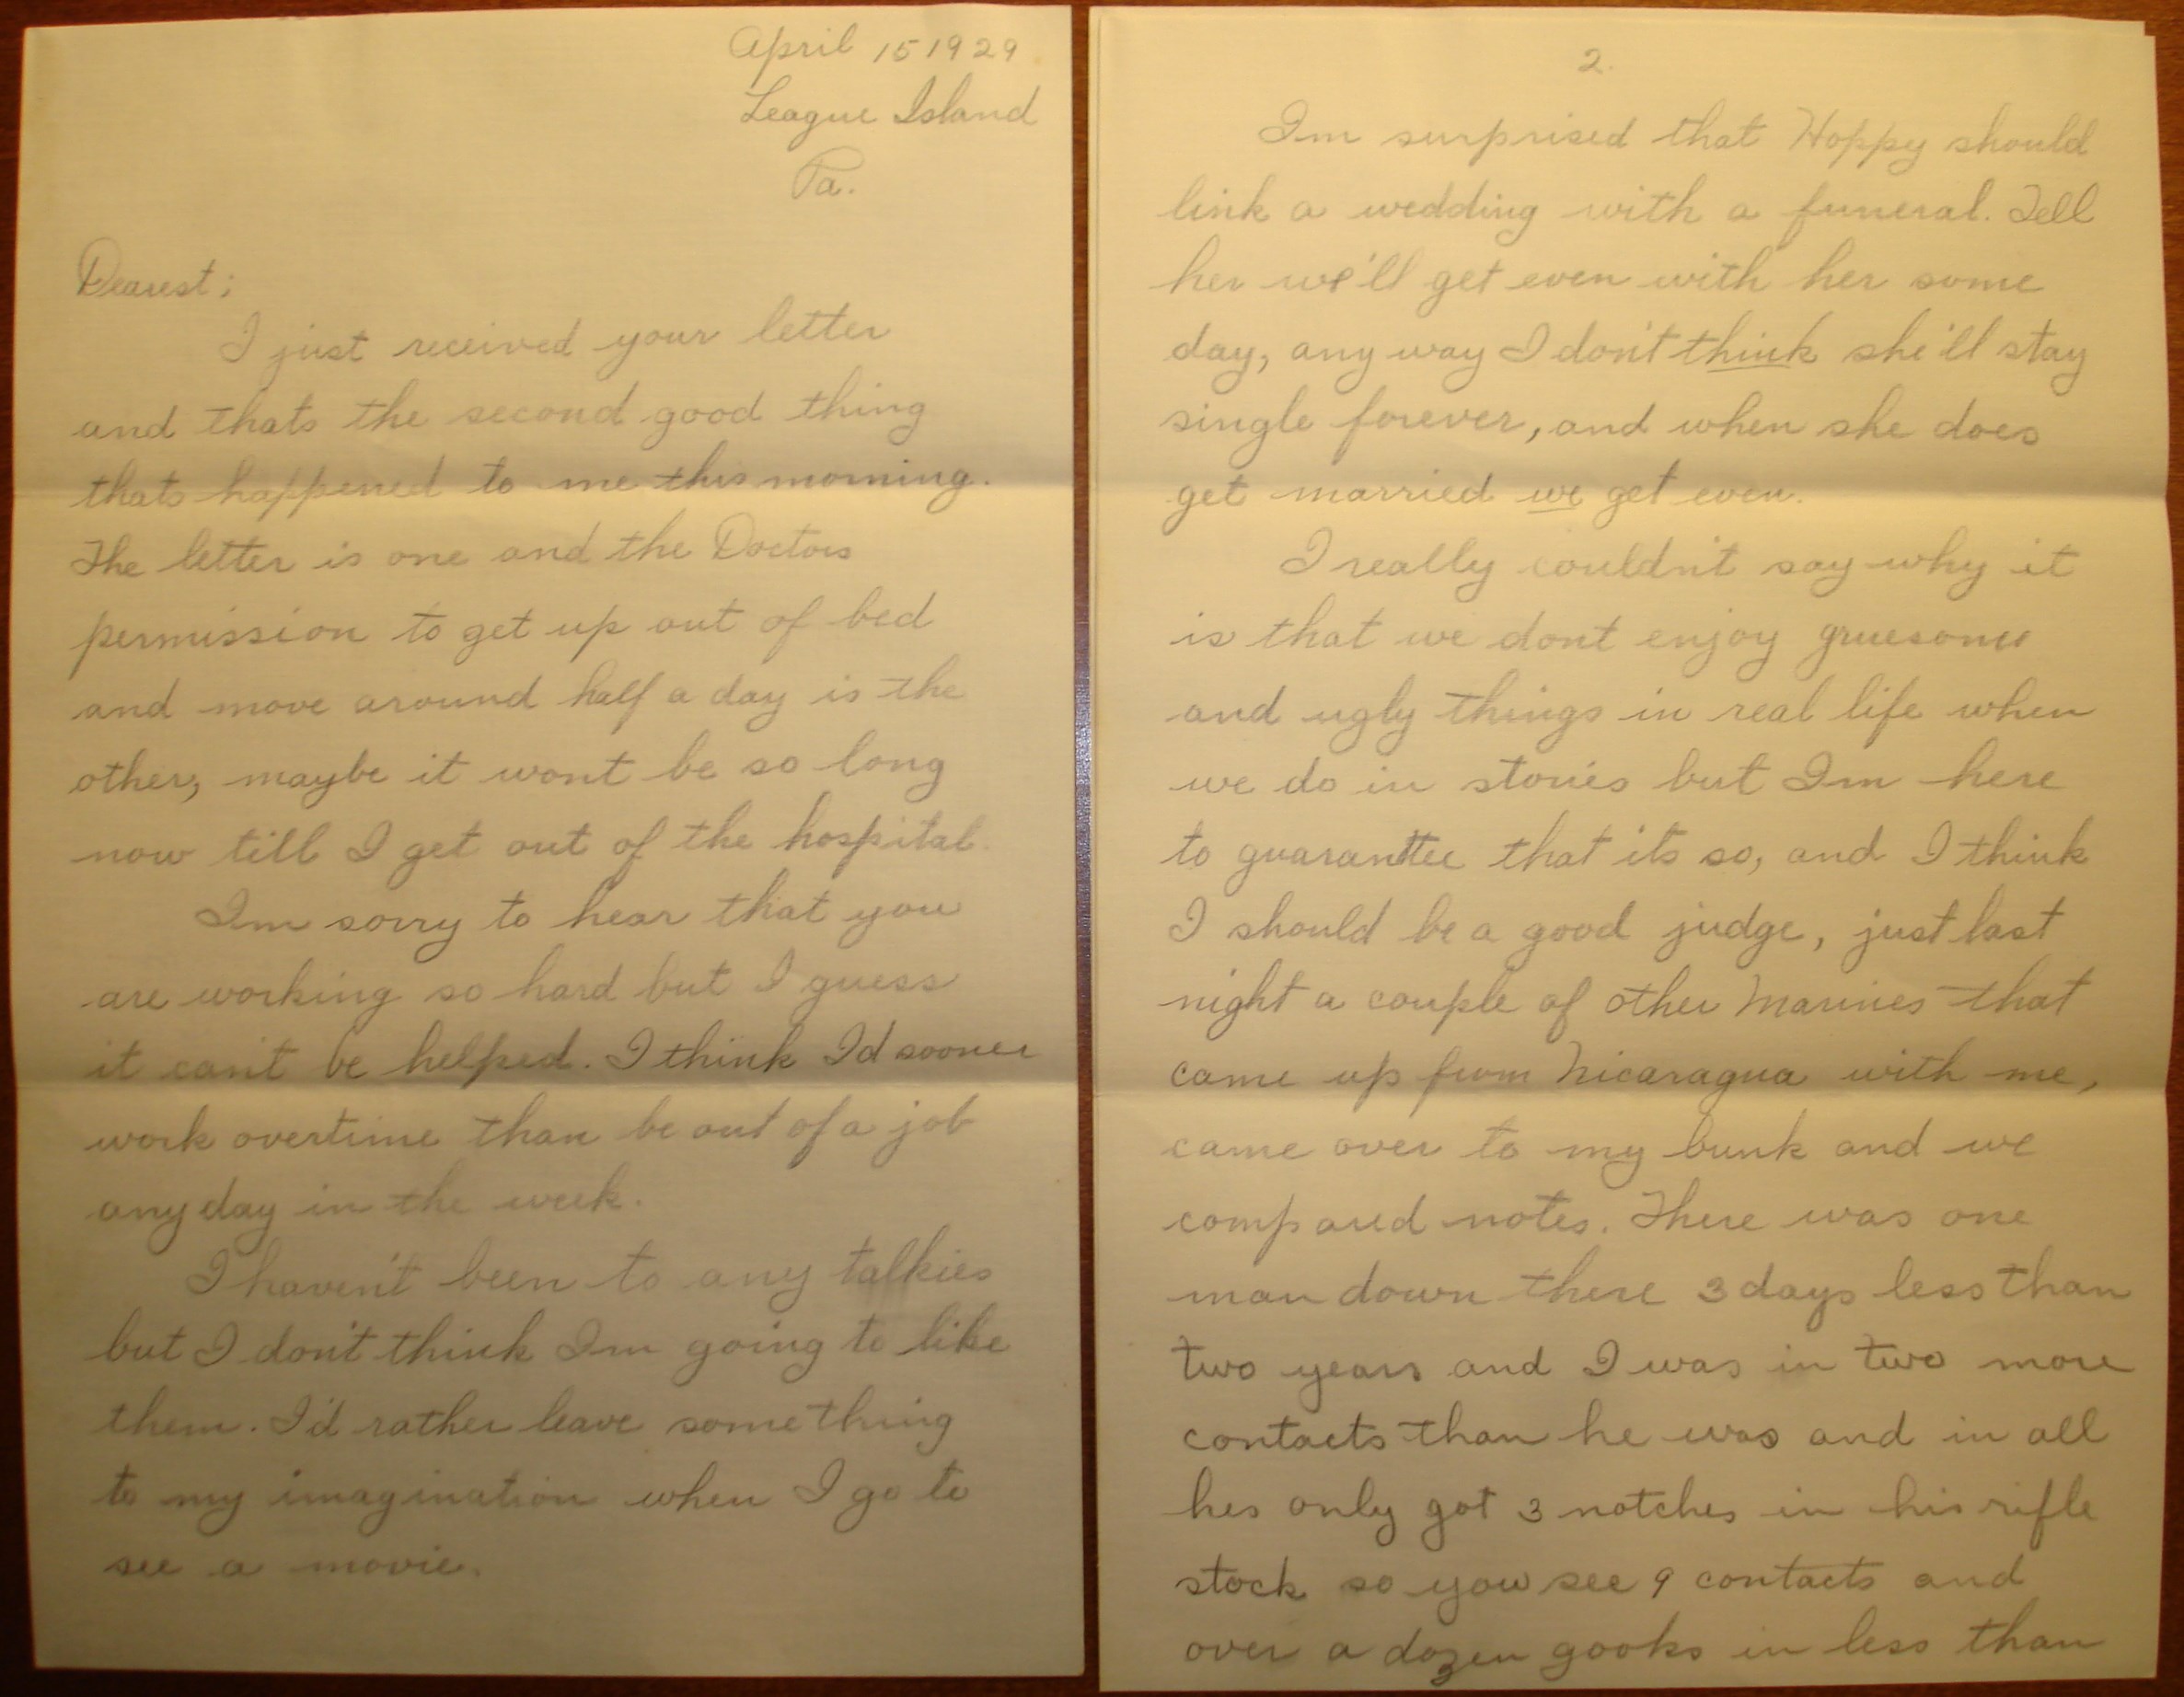 April 15 1929
League Island
Pa.
Dearest;
I just received your letter
and thats the second good thing
thats happened to me this morning.
The letter is one and the Doctors
permission to get up out of bed
and move around half a day is the
other, maybe it wont be so long
now till I get out of the hospital.
Im sorry to hear that you
are working so hard but I guess
it can't be helped. I think I'd sooner
work overtime than be out of a job
any day in the week.
I haven't been to any talkies
but I don't think Im going to like
them. I'd rather leave something
to my imagination when I go to
see a movie.
2.
Im surprised that Hoppy should
link a wedding with a funeral. Tell
her we'll get even with her some
day, any way I don't think she'll stay
single forever, and when she does
get married we get even.
I really couldn't say why it
is that we dont enjoy gruesome
and ugly things in real life when
we do in stories but Im here
to guaranttee that its so, and I think
I should be a good judge, just last
night a couple of other Marines that
came up from Nicaragua with me,
came over to my bunk and we
compared notes. There was one
man down there 3 days less than
two years and I was in two more
contacts than he was and in all
hes only got 3 notches in his rifle
stock so you see 9 contacts and
over a dozen gooks in less than